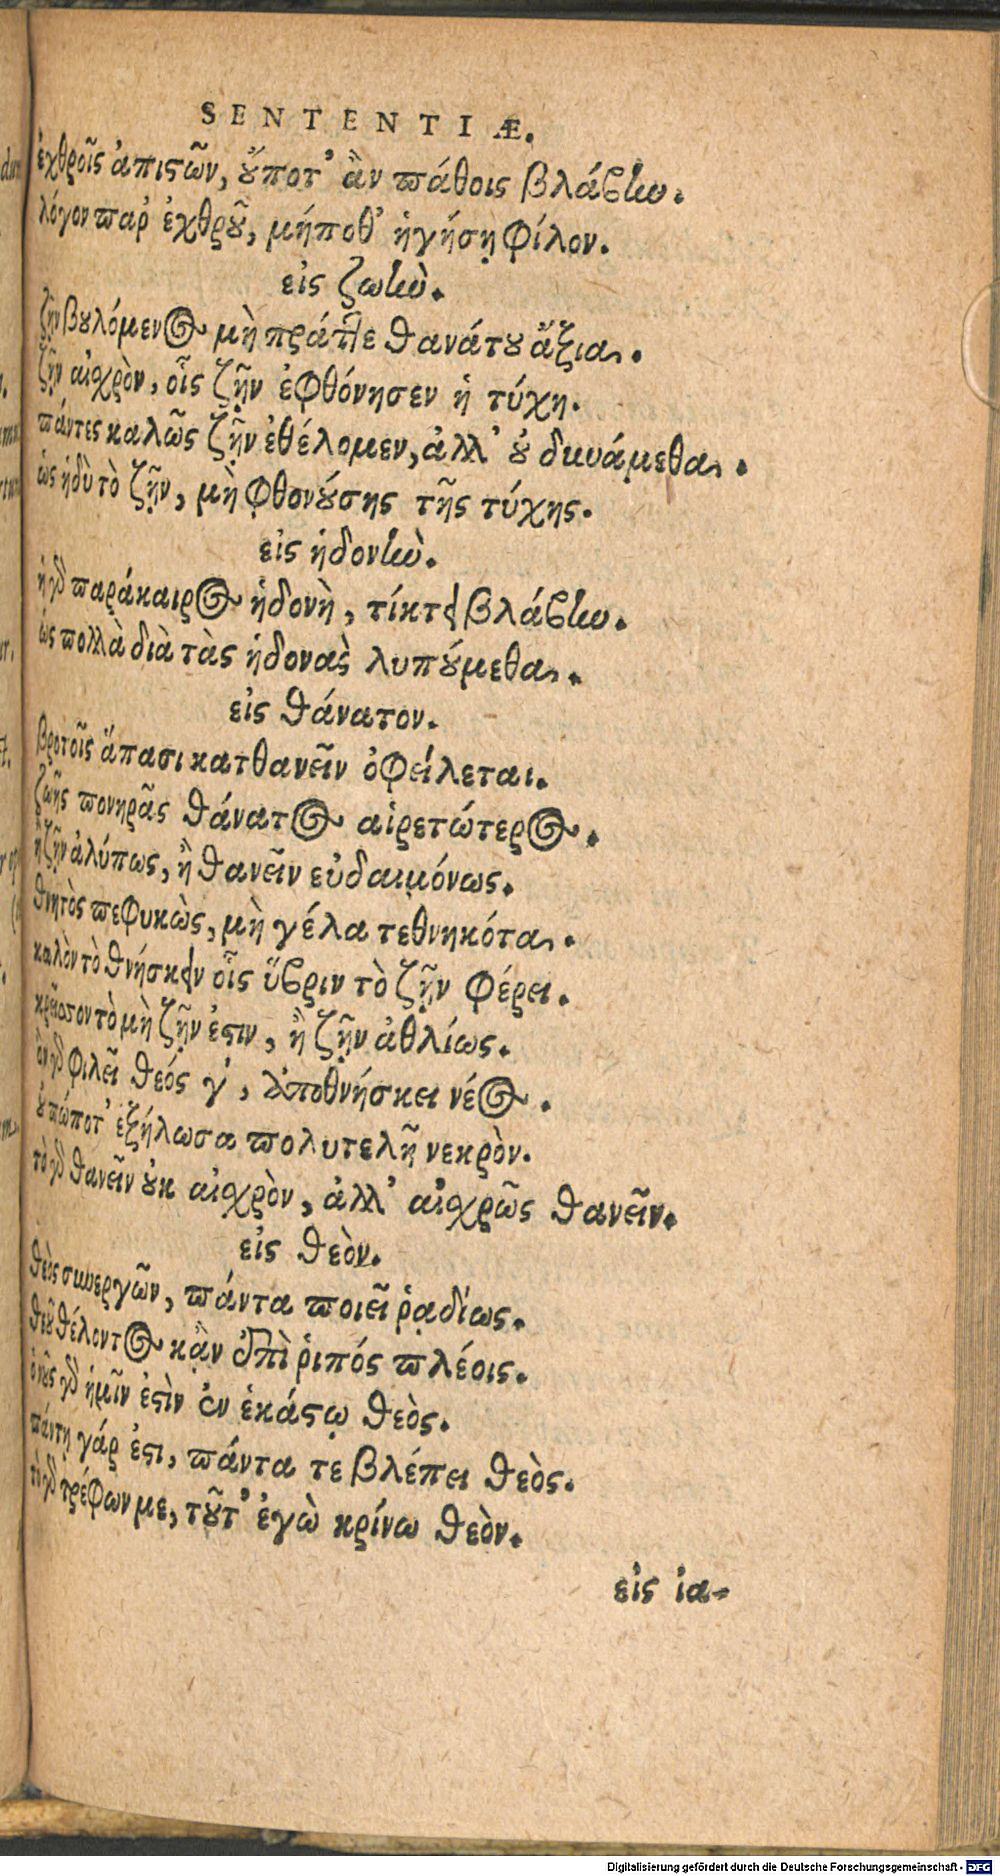 SENTENTIÆ.
ἐχθροῖς ἀπιστῶν, οὔποτ' ἂν πάθοις βλάβην.
λόγον παρ' ἐχθροῦ, μήποθ' ἡγήσῃ φίλον.
εἰς ζωὴν.
ζῆν βουλόμενος μὴ πράττε θανάτου ἄξια.
ζῆν αἰσχρὸν, οἷς ζῆν ἐφθόνησεν ἡ τύχη.
πάντες καλῶς ζῆν ἐθέλομεν, ἀλλ' οὐ δυνάμεθα.
ὡς ἡδὺ τὸ ζῆν, μὴ φθονούσης τῆς τύχης.
εἰς ἡδονὴν.
ἡ γὰρ παράκαιρος ἡδονὴ, τίκτει βλάβην.
ὡς πολλὰ διὰ τὰς ἡδονὰς λυπούμεθα.
εἰς θάνατον.
βροτοῖς ἅπασι κατθανεῖν ὀφείλεται.
ζωῆς πονηρᾶς θάνατος αἱρετώτερος.
ἢ ζῆν ἀλύπως, ἢ θανεῖν εὐδαιμόνως.
θνητὸς πεφυκὼς, μὴ γέλα τεθνηκότα.
καλὸν τὸ θνήσκειν οἷς ὕβριν τὸ ζῆν φέρει.
κρεῖσσον τὸ μὴ ζῆν ἐστιν, ἢ ζῆν ἀθλίως.
ὃν γὰρ φιλεῖ θεός γ', ἀποθνήσκει νέος.
οὐπώποτ' ἐζήλωσα πολυτελῆ νεκρὸν.
τὸ γὰρ θανεῖν οὐκ αἰσχρὸν, ἀλλ' αἰσχρῶς θανεῖν.
εἰς θεὸν.
θεὸς συνεργῶν, πάντα ποιεῖ ῥᾳδίως.
θεοῦ θέλοντος κᾂν ἐπὶ ῥιπός πλέοις.
ὁ νοῦς γὰρ ἡμῖν ἐστὶν ἐν ἑκάστῳ θεὸς.
πάντη γάρ ἐστι, πάντα τε βλέπει θεὸς.
τὸ γὰρ τρέφων με, τοῦτ' ἐγὼ κρίνω θεὸν.
εἰς ἰα-
Digitalisierung gefördert durch die Deutsche Forschungsgemeinschaft - DFG